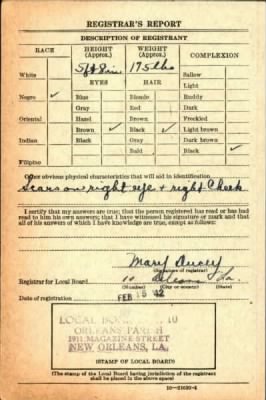 REGISTRAR'S REPORT
DESCRIPTION OF REGISTRANT
RACE HEIGHT (Approx.) WEIGHT (Approx.) COMPLEXION
5ft 8in 175 lbs
White Sallow
EYES HAIR Light
Negro ✓ Blue Blonde Ruddy
Gray Red Dark
Oriental Hazel Brown Freckled
Brown ✓ Black ✓ Light brown
Indian Black Gray Dark brown
Bald Black ✓
Filipino
Other obvious physical characteristics that will aid in identification
Scars on right eye + right Cheek
I certify that my answers are true; that the person registered has read or has had
read to him his own answers; that I have witnessed his signature or mark and that
all of his answers of which I have knowledge are true, except as follows:
Mary
(Signature of registrar)
Registrar for Local Board 10 Orleans La.
(Number) (City or county) (State)
Date of registration FEB 15 42
LOCAL BOARD 10
ORLEANS PARISH
1911 MAGAZINE STREET
NEW ORLEANS, LA.
(STAMP OF LOCAL BOARD)
(The stamp of the Local Board having jurisdiction of the registrant
shall be placed in the above space)